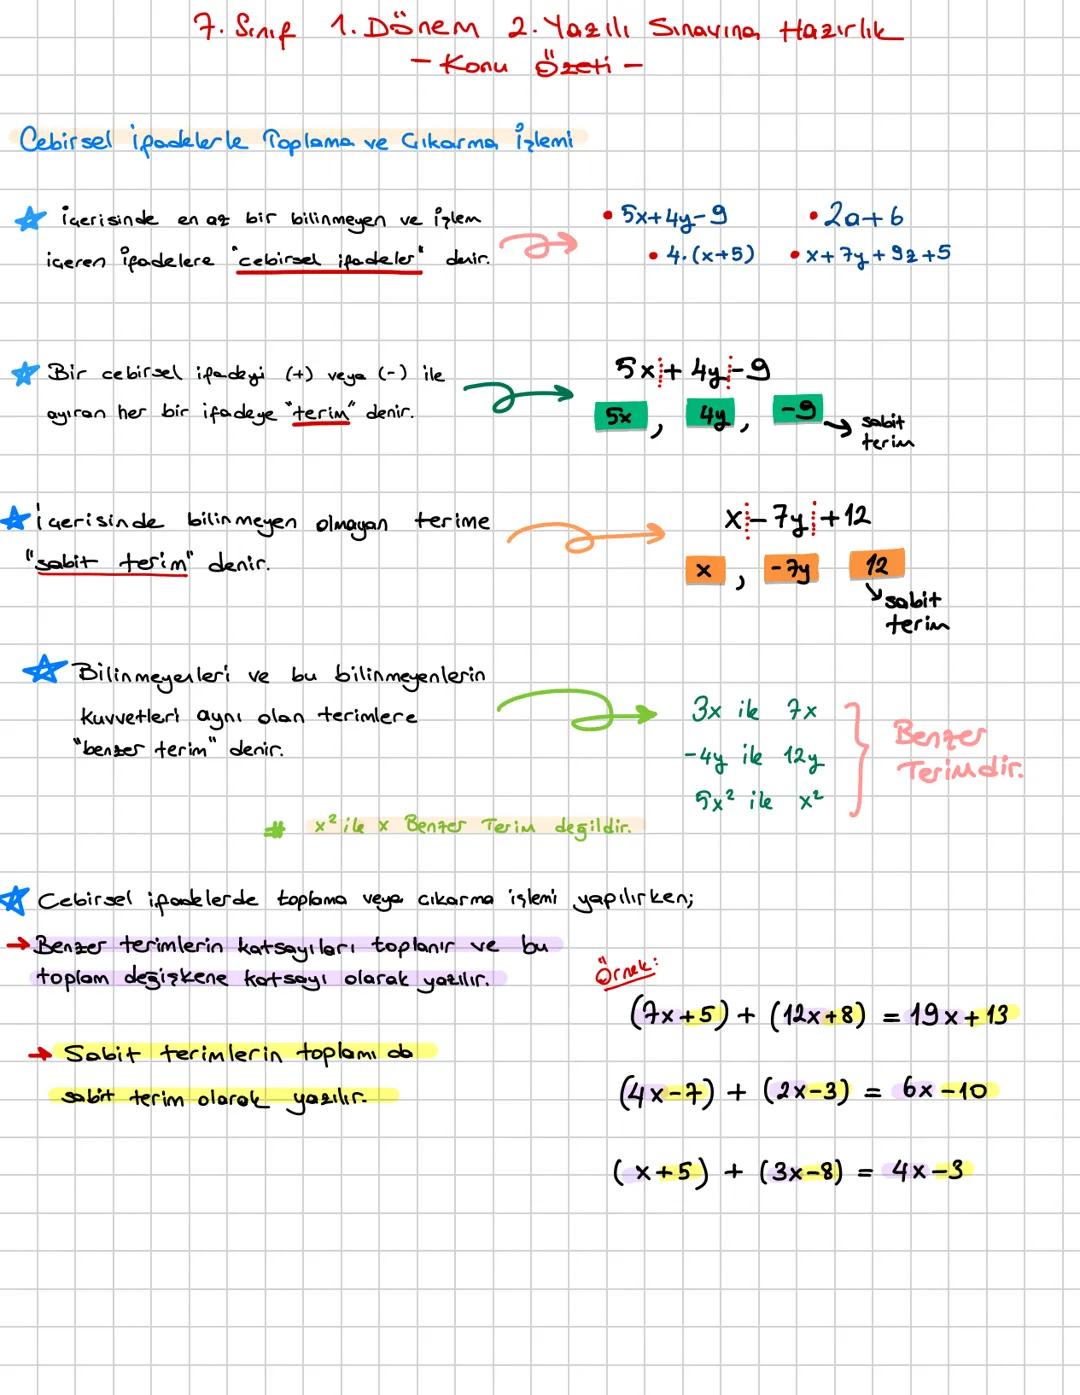 7. Sınıf 1. Dönem 2. Yazılı Sınavına Hazırlık
- Konu Özeti -
Cebirsel ifadelerle Toplama ve Çıkarma İşlemi
içerisinde en az bir bilinmeyen ve işlem
içeren ifadelere "cebirsel ifadeler" denir.
• 5x+4y-9 • 2a+6
• 4.(x+5) • x+7y+9z+5
Bir cebirsel ifadeyi (+) veya (-) ile
ayıran her bir ifadeye "terim" denir.
5x + 4y - 9
5x , 4y , -9
sabit
terim
içerisinde bilinmeyen olmayan terime
"sabit terim" denir.
x - 7y + 12
x , -7y 12
sabit
terim
Bilinmeyenleri ve bu bilinmeyenlerin
kuvvetleri aynı olan terimlere
"benzer terim" denir.
3x ile 7x
-4y ile 12y
5x² ile x²
Benzer
Terimdir.
# x² ile x Benzer Terim değildir.
Cebirsel ifadelerde toplama veya çıkarma işlemi yapılırken;
→ Benzer terimlerin katsayıları toplanır ve bu
toplam değişkene katsayı olarak yazılır.
→ Sabit terimlerin toplamı da
sabit terim olarak yazılır.
Örnek:
(7x+5) + (12x+8) = 19x+13
(4x-7) + (2x-3) = 6x-10
(x+5) + (3x-8) = 4x-3